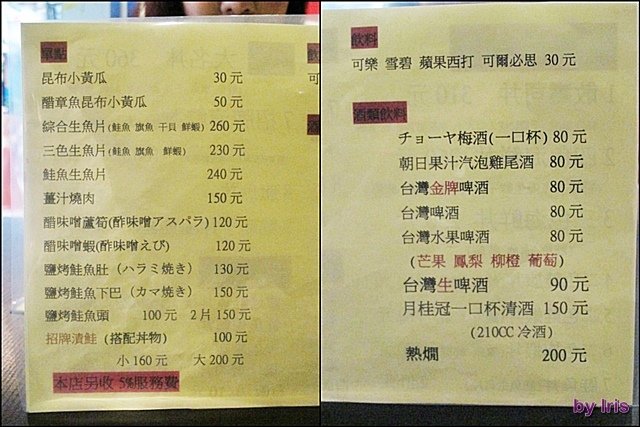 單點
昆布小黃瓜 30元
醋章魚昆布小黃瓜 50元
綜合生魚片(鮭魚 旗魚 干貝 鮮蝦) 260元
三色生魚片(鮭魚 旗魚 鮮蝦) 230元
鮭魚生魚片 240元
薑汁燒肉 150元
醋味噌蘆筍(酢味噌アスパラ) 120元
醋味噌蝦(酢味噌えび) 120元
鹽烤鮭魚肚(ハラミ焼き) 130元
鹽烤鮭魚下巴(カマ焼き) 150元
鹽烤鮭魚頭 100元 2片150元
招牌漬鮭(搭配丼物) 100元
小160元 大200元
本店另收 5%服務費
飲料
可樂 雪碧 蘋果西打 可爾必思 30元
酒類飲料
チョーヤ梅酒(一口杯) 80元
朝日果汁汽泡雞尾酒 80元
台灣金牌啤酒 80元
台灣啤酒 80元
台灣水果啤酒 80元
(芒果 鳳梨 柳橙 葡萄)
台灣生啤酒 90元
月桂冠一口杯清酒 150元
(210CC 冷酒)
熱燗 200元
by Iris